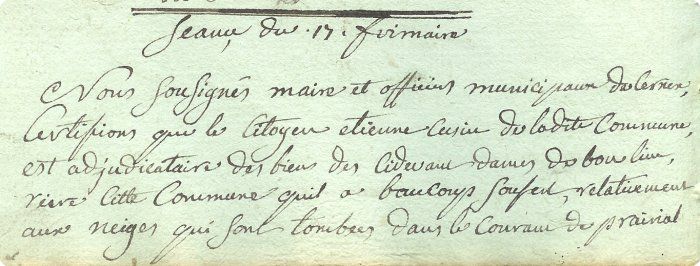 Seance du .17. frimaire
Nous sousignés maire et officiers municipaux de Cernex,
Certifions que le Citoyen etienne Cusin de ladite Commune
est adjudicataire des biens des Cidevant dames de bon lieu,
riere Cette Commune quil a beaucoup soufert, relativement
aux neiges qui sont tombées dans le Courant de prairial